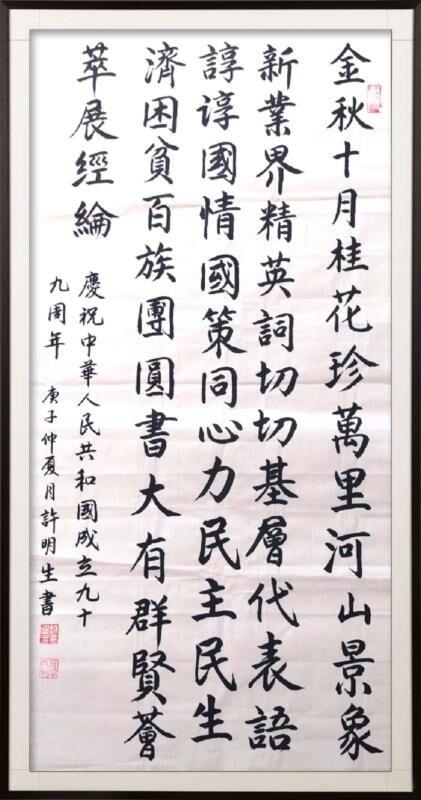 金秋十月桂花珍萬里河山景象
新業界精英詞切切基層代表語
諄諄國情國策同心力民主民生
濟困貧百族團圓書大有群賢薈
萃展經綸
慶祝中華人民共和國成立九十
九周年 庚子仲夏月許明生書